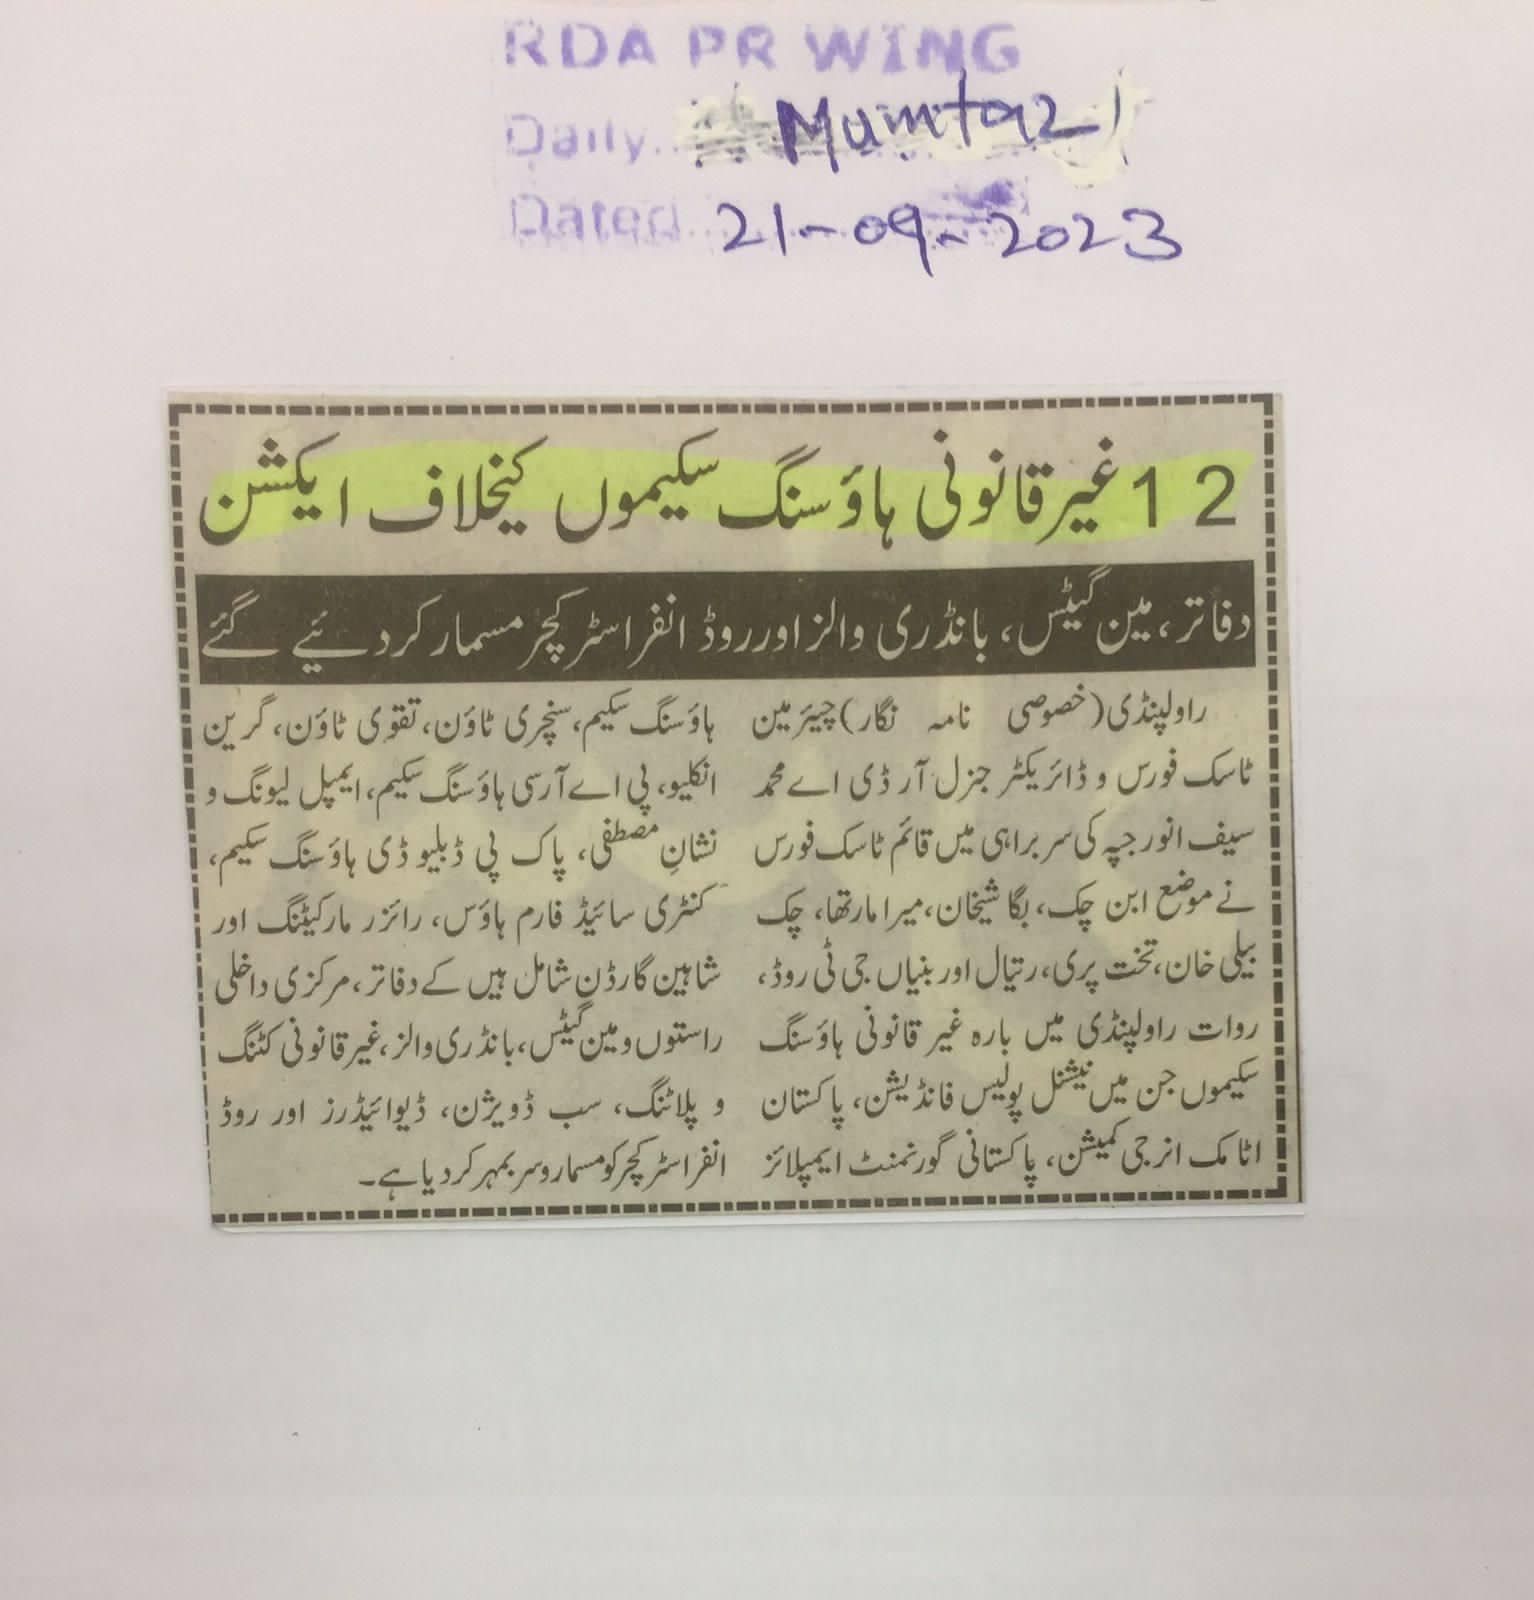 RDA PR WING
Daily.. Mumtaz
Dated. 21-09-2023
12 غیر قانونی ہاؤسنگ سکیموں کیخلاف ایکشن
دفاتر، مین گیٹس، بانڈری والز اور روڈ انفراسٹرکچر مسمار کر دئیے گئے
راولپنڈی (خصوصی نامہ نگار) چیئرمین
ٹاسک فورس و ڈائریکٹر جنرل آر ڈی اے محمد
سیف انور جپہ کی سربراہی میں قائم ٹاسک فورس
نے موضع ابن چک، بگا شیخان، میرا مارتھا، چک
بیلی خان، تخت پری، رتیال اور بنیاں جی ٹی روڈ،
روات راولپنڈی میں بارہ غیر قانونی ہاؤسنگ
سکیموں جن میں نیشنل پولیس فانڈیشن، پاکستان
اٹامک انرجی کمیشن، پاکستانی گورنمنٹ ایمپلائز
ہاؤسنگ سکیم، سنچری ٹاؤن، تقوی ٹاؤن، گرین
انکلیو، پی اے آر سی ہاؤسنگ سکیم، ایمپل لیونگ و
نشانِ مصطفی، پاک پی ڈبلیو ڈی ہاؤسنگ سکیم،
کنٹری سائیڈ فارم ہاؤس، رائزر مارکیٹنگ اور
شاہین گارڈن شامل ہیں کے دفاتر، مرکزی داخلی
راستوں و مین گیٹس، بانڈری والز، غیر قانونی کٹنگ
و پلاٹنگ، سب ڈویژن، ڈیوائیڈرز اور روڈ
انفراسٹرکچر کو مسمار و سر بمہر کر دیا ہے۔